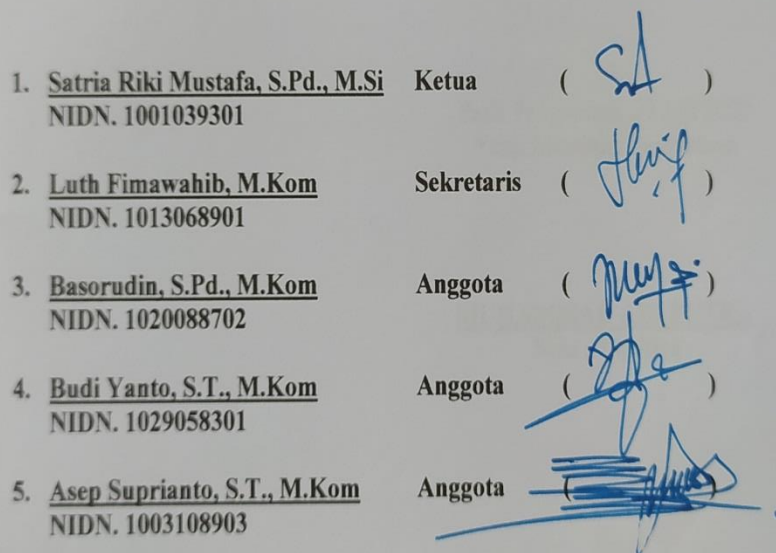 1. Satria Riki Mustafa, S.Pd., M.Si Ketua ( )
NIDN. 1001039301
2. Luth Fimawahib, M.Kom Sekretaris ( )
NIDN. 1013068901
3. Basorudin, S.Pd., M.Kom Anggota ( )
NIDN. 1020088702
4. Budi Yanto, S.T., M.Kom Anggota ( )
NIDN. 1029058301
5. Asep Suprianto, S.T., M.Kom Anggota ( )
NIDN. 1003108903